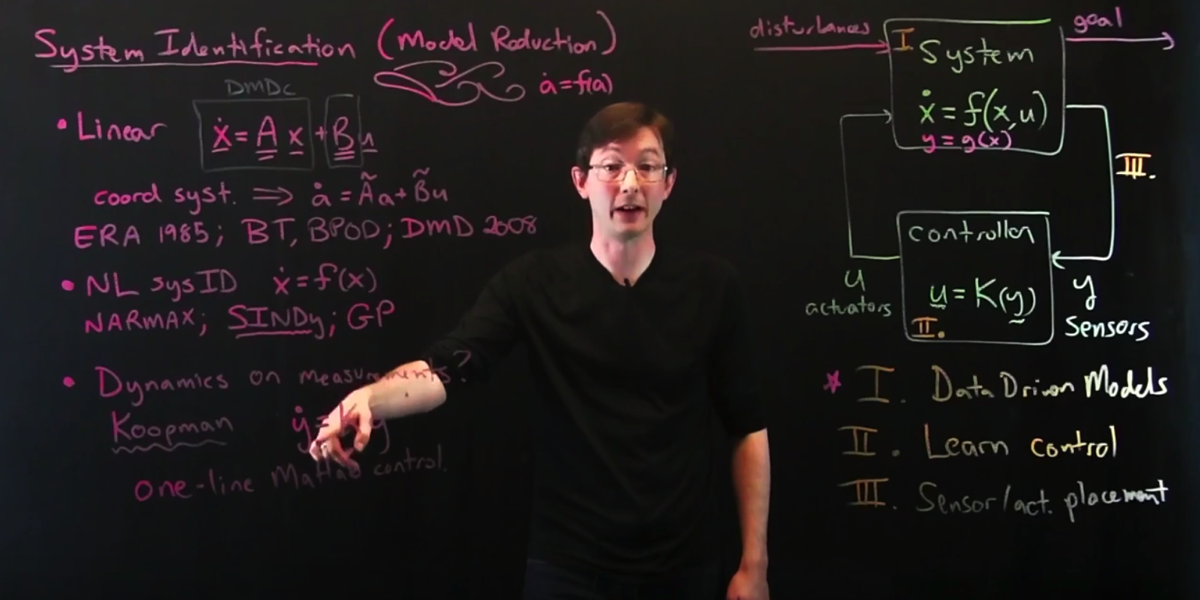 System Identification (Model Reduction)
ȧ = f(a)
DMDc
• Linear ẋ = A x + B u
coord syst. ⇒ ȧ = Ãa + B̃u
ERA 1985; BT, BPOD; DMD 2008
• NL sysID ẋ = f(x)
NARMAX; SINDy; GP
• Dynamics on measurements?
Koopman ẏ = K y
one-line Matlab control.
disturbances
goal
I. System
ẋ = f(x,u)
y = g(x)
III.
controller
u = K(y)
II.
u
actuators
y
Sensors
* I. Data Driven Models
II. Learn control
III. Sensor/act. placement